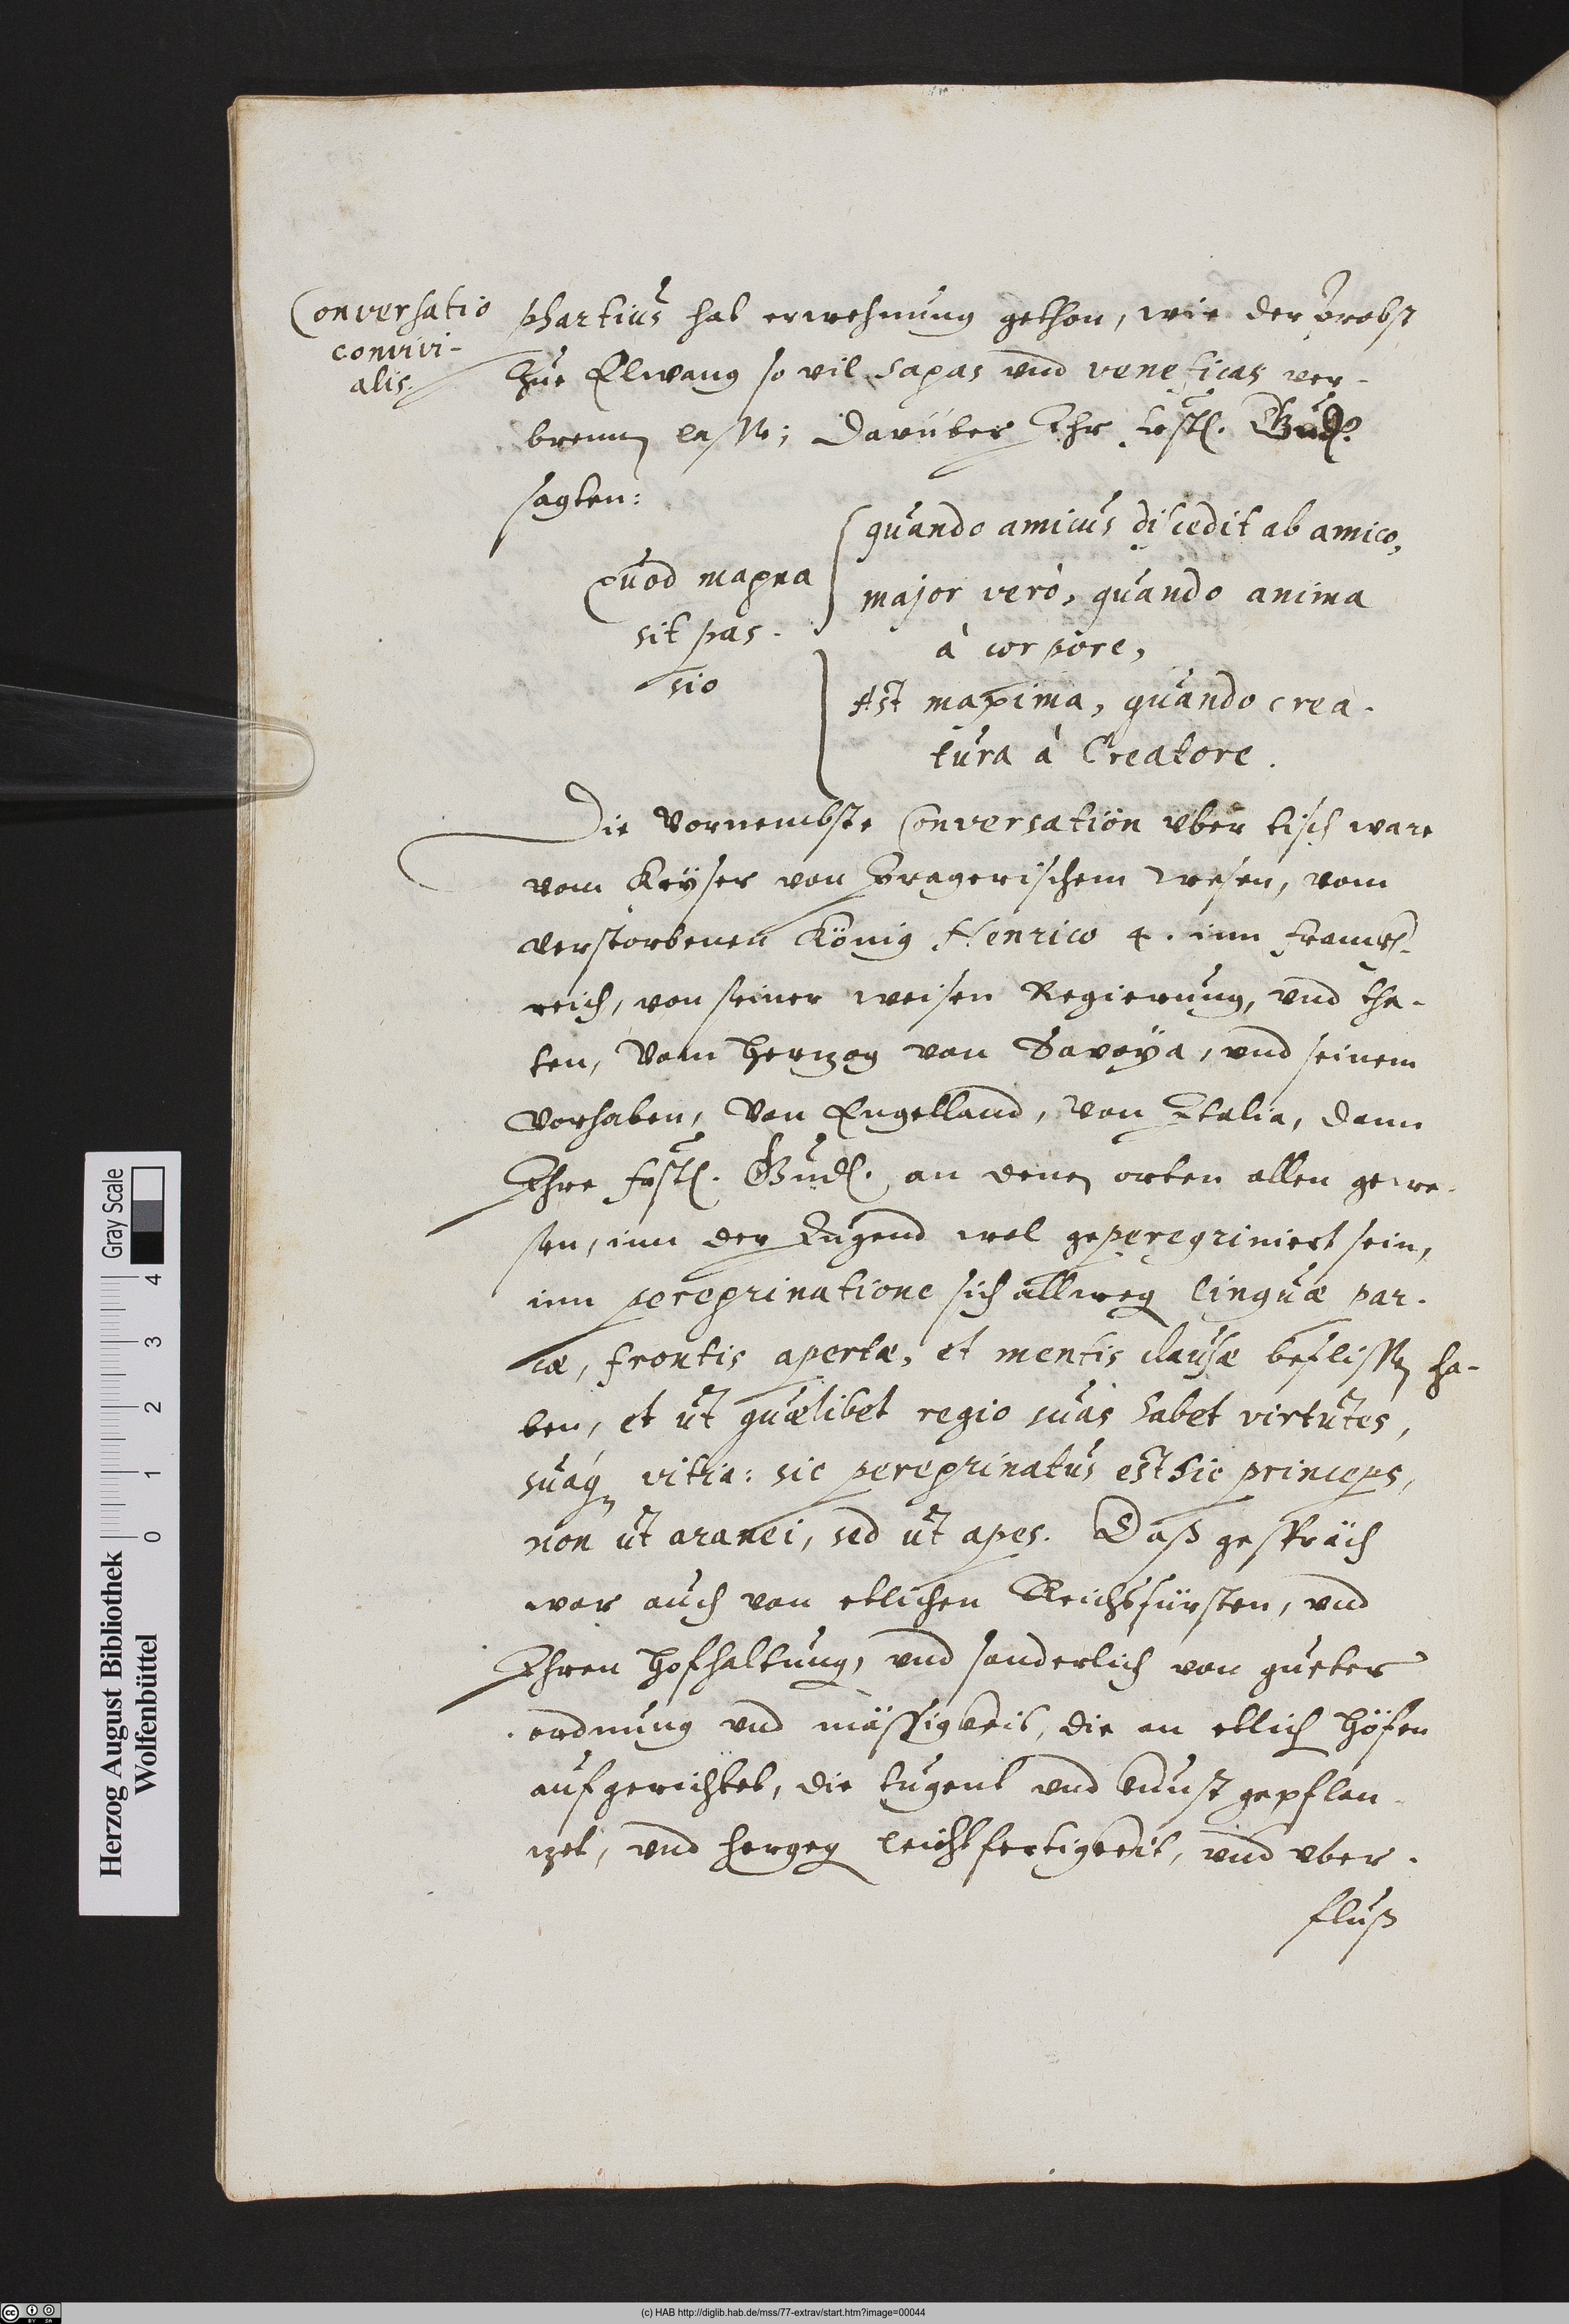 Conversatio
convivi-
alis.
phartius hat erwehnung gethon, wie der Probst
zue Elwang so vil sagas vnd veneficas ver-
brennen lassen; Darüber Ihr fürstl. Gnd.
sagten:
quod magna
sit pas-
sio
quando amicus discedit ab amico,
major verò, quando anima
à corpore,
Ast maxima, quando crea-
tura à Creatore.
Die Vornembste Conversation vber tisch ware
vom Keyser von Pragerischem wesen, vom
verstorbenen König Henrico 4. inn Franckh-
reich, von seiner weisen Regierung, vnd tha-
ten, Vom Hertzog von Savoya, vnd seinem
Vorhaben, Von Engelland, Von Italia, dann
Ihre fürstl. Gnd. an denen orten allen gewe-
sen, inn der Iugend wol geperegriniert sein,
inn peregrinatione sich allweg linguæ par-
cæ, frontis apertæ, et mentis clausæ beflissen ha-
ben, et ut quælibet regio suas habet virtutes,
suaq. vitia: sic peregrinatus est hic princeps,
non ut aranei, sed ut apes. Daß gespräch
war auch von etlichen Reichsfürsten, vnd
Ihren Hofhaltung, vnd sonderlich von gueter
ordnung vnd mässigkeit, die an etlich Höfen
aufgerichtet, die tugent vnd kunst gepflan-
tzet, vnd hergeg leichtfertigkeit, vnd vber-
fluß
Herzog August Bibliothek
Wolfenbüttel
0 1 2 3 4
Gray Scale
(c) HAB http://diglib.hab.de/mss/77-extrav/start.htm?image=00044